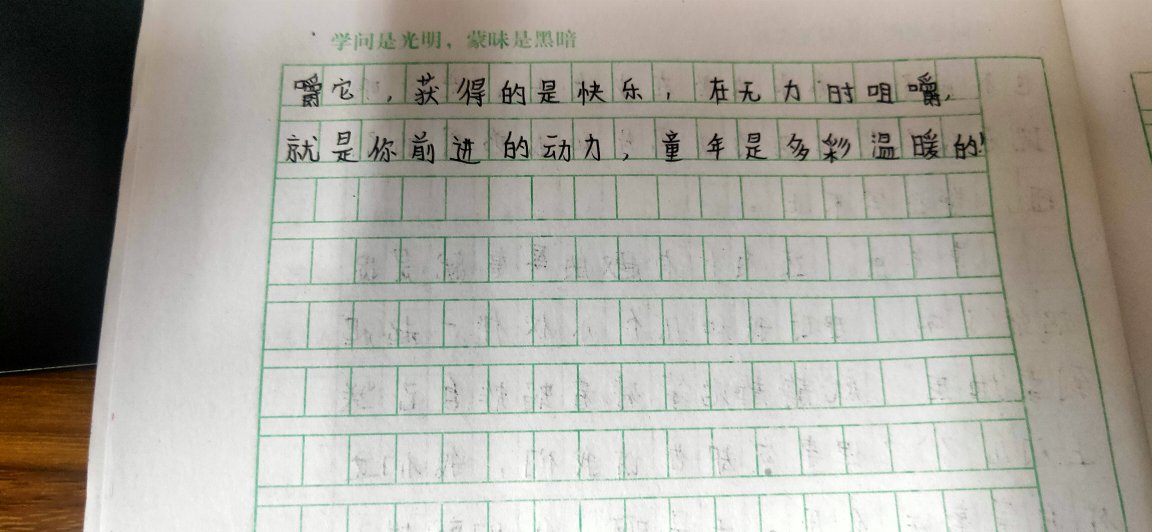 学问是光明，蒙昧是黑暗
嚼它，获得的是快乐，在无力时咀嚼，
就是你前进的动力，童年是多彩温暖的！